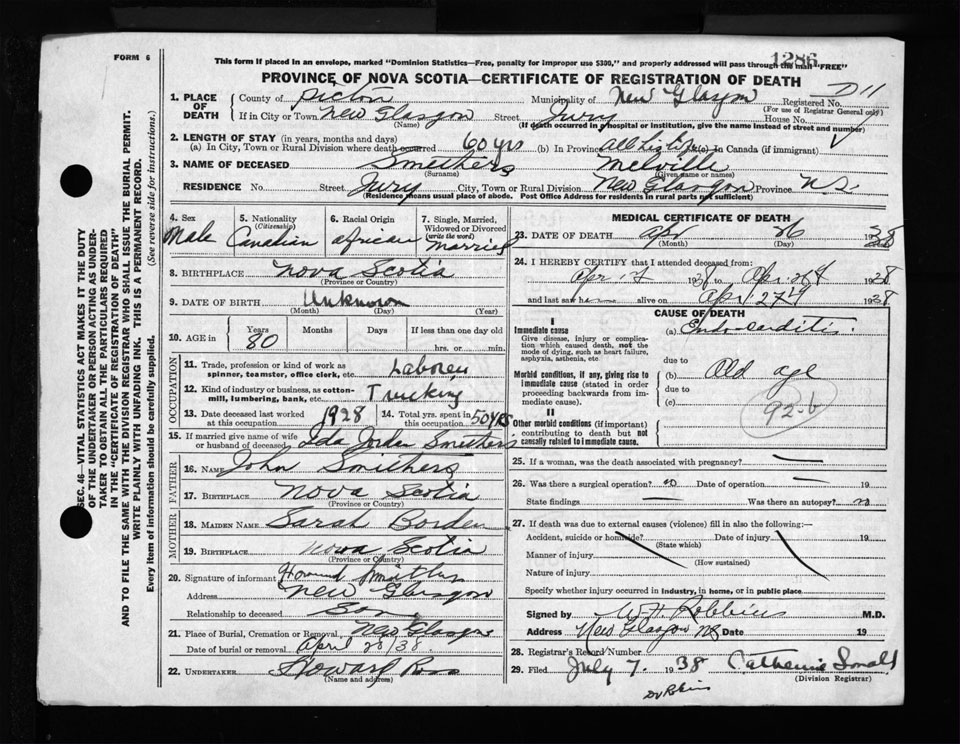 FORM 6
This form if placed in an envelope, marked "Dominion Statistics—Free, penalty for improper use $300," and properly addressed will pass through the mail "FREE"
1286
PROVINCE OF NOVA SCOTIA—CERTIFICATE OF REGISTRATION OF DEATH
D11
1. PLACE OF DEATH { County of Pictou Municipality of New Glasgow Registered No.
(For use of Registrar General only)
If in City or Town New Glasgow Street Jury House No.
(Name) (If death occurred in a hospital or institution, give the name instead of street and number)
2. LENGTH OF STAY (in years, months and days)
(a) In City, Town or Rural Division where death occurred 60 yrs (b) In Province All Life (c) In Canada (if immigrant)
3. NAME OF DECEASED Smithers Melville
(Surname) (Given name or names)
RESIDENCE No. Street Jury City, Town or Rural Division New Glasgow Province NS
(Residence means usual place of abode. Post Office Address for residents in rural parts not sufficient)
4. Sex Male
5. Nationality (Citizenship) Canadian
6. Racial Origin African
7. Single, Married, Widowed or Divorced (write the word) Married
8. BIRTHPLACE Nova Scotia
(Province or Country)
9. DATE OF BIRTH Unknown
(Month) (Day) (Year)
10. AGE in { Years 80 Months Days If less than one day old
hrs. or min.
OCCUPATION
11. Trade, profession or kind of work as spinner, teamster, office clerk, etc. Laborer
12. Kind of industry or business, as cotton-mill, lumbering, bank, etc. Trucking
13. Date deceased last worked at this occupation 1928
14. Total yrs. spent in this occupation 50 yrs
15. If married give name of wife or husband of deceased Ida Jordan Smithers
FATHER
16. NAME John Smithers
17. BIRTHPLACE Nova Scotia
(Province or Country)
MOTHER
18. MAIDEN NAME Sarah Borden
19. BIRTHPLACE Nova Scotia
(Province or Country)
20. Signature of informant Howard Smithers
Address New Glasgow
Relationship to deceased Son
21. Place of Burial, Cremation or Removal New Glasgow
Date of burial or removal April 28/38
22. UNDERTAKER Howard Ross
(Name and address)
MEDICAL CERTIFICATE OF DEATH
23. DATE OF DEATH Apr 26 1938
(Month) (Day)
24. I HEREBY CERTIFY that I attended deceased from:
Apr 1938 to Apr 26th 1938
and last saw h alive on Apr 27th 1938
CAUSE OF DEATH
I
Immediate cause
Give disease, injury or complication which caused death, not the mode of dying, such as heart failure, asphyxia, asthenia, etc.
(a) Endo-carditis
due to
Morbid conditions, if any, giving rise to immediate cause (stated in order proceeding backwards from immediate cause).
(b) Old age
due to
(c)
92-b
II
Other morbid conditions (if important) contributing to death but not causally related to immediate cause.
25. If a woman, was the death associated with pregnancy?
26. Was there a surgical operation? no Date of operation 19
State findings Was there an autopsy? no
27. If death was due to external causes (violence) fill in also the following:—
Accident, suicide or homicide? Date of injury 19
(State which)
Manner of injury
(How sustained)
Nature of injury
Specify whether injury occurred in industry, in home, or in public place
Signed by W.H. Robbins M.D.
Address New Glasgow NS Date 19
28. Registrar's Record Number
29. Filed July 7. 1938 Catherine
(Division Registrar)
Dr Robins
SEC. 46—VITAL STATISTICS ACT MAKES IT THE DUTY OF THE UNDERTAKER OR PERSON ACTING AS UNDERTAKER TO OBTAIN ALL THE PARTICULARS REQUIRED IN THE "CERTIFICATE OF REGISTRATION OF DEATH"
AND TO FILE THE SAME WITH THE DIVISION REGISTRAR WHO SHALL ISSUE THE BURIAL PERMIT.
WRITE PLAINLY WITH UNFADING INK. THIS IS A PERMANENT RECORD.
Every item of information should be carefully supplied. (See reverse side for instructions.)